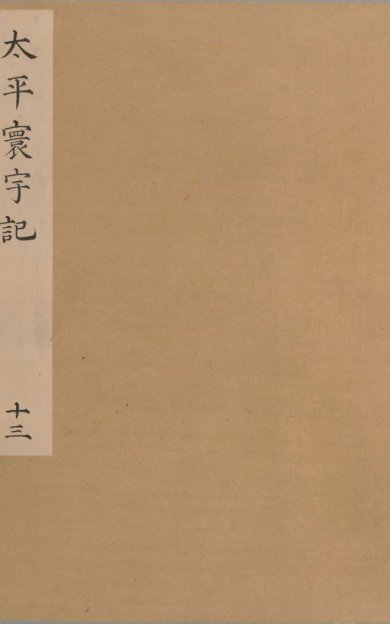 太平寰宇記
十三